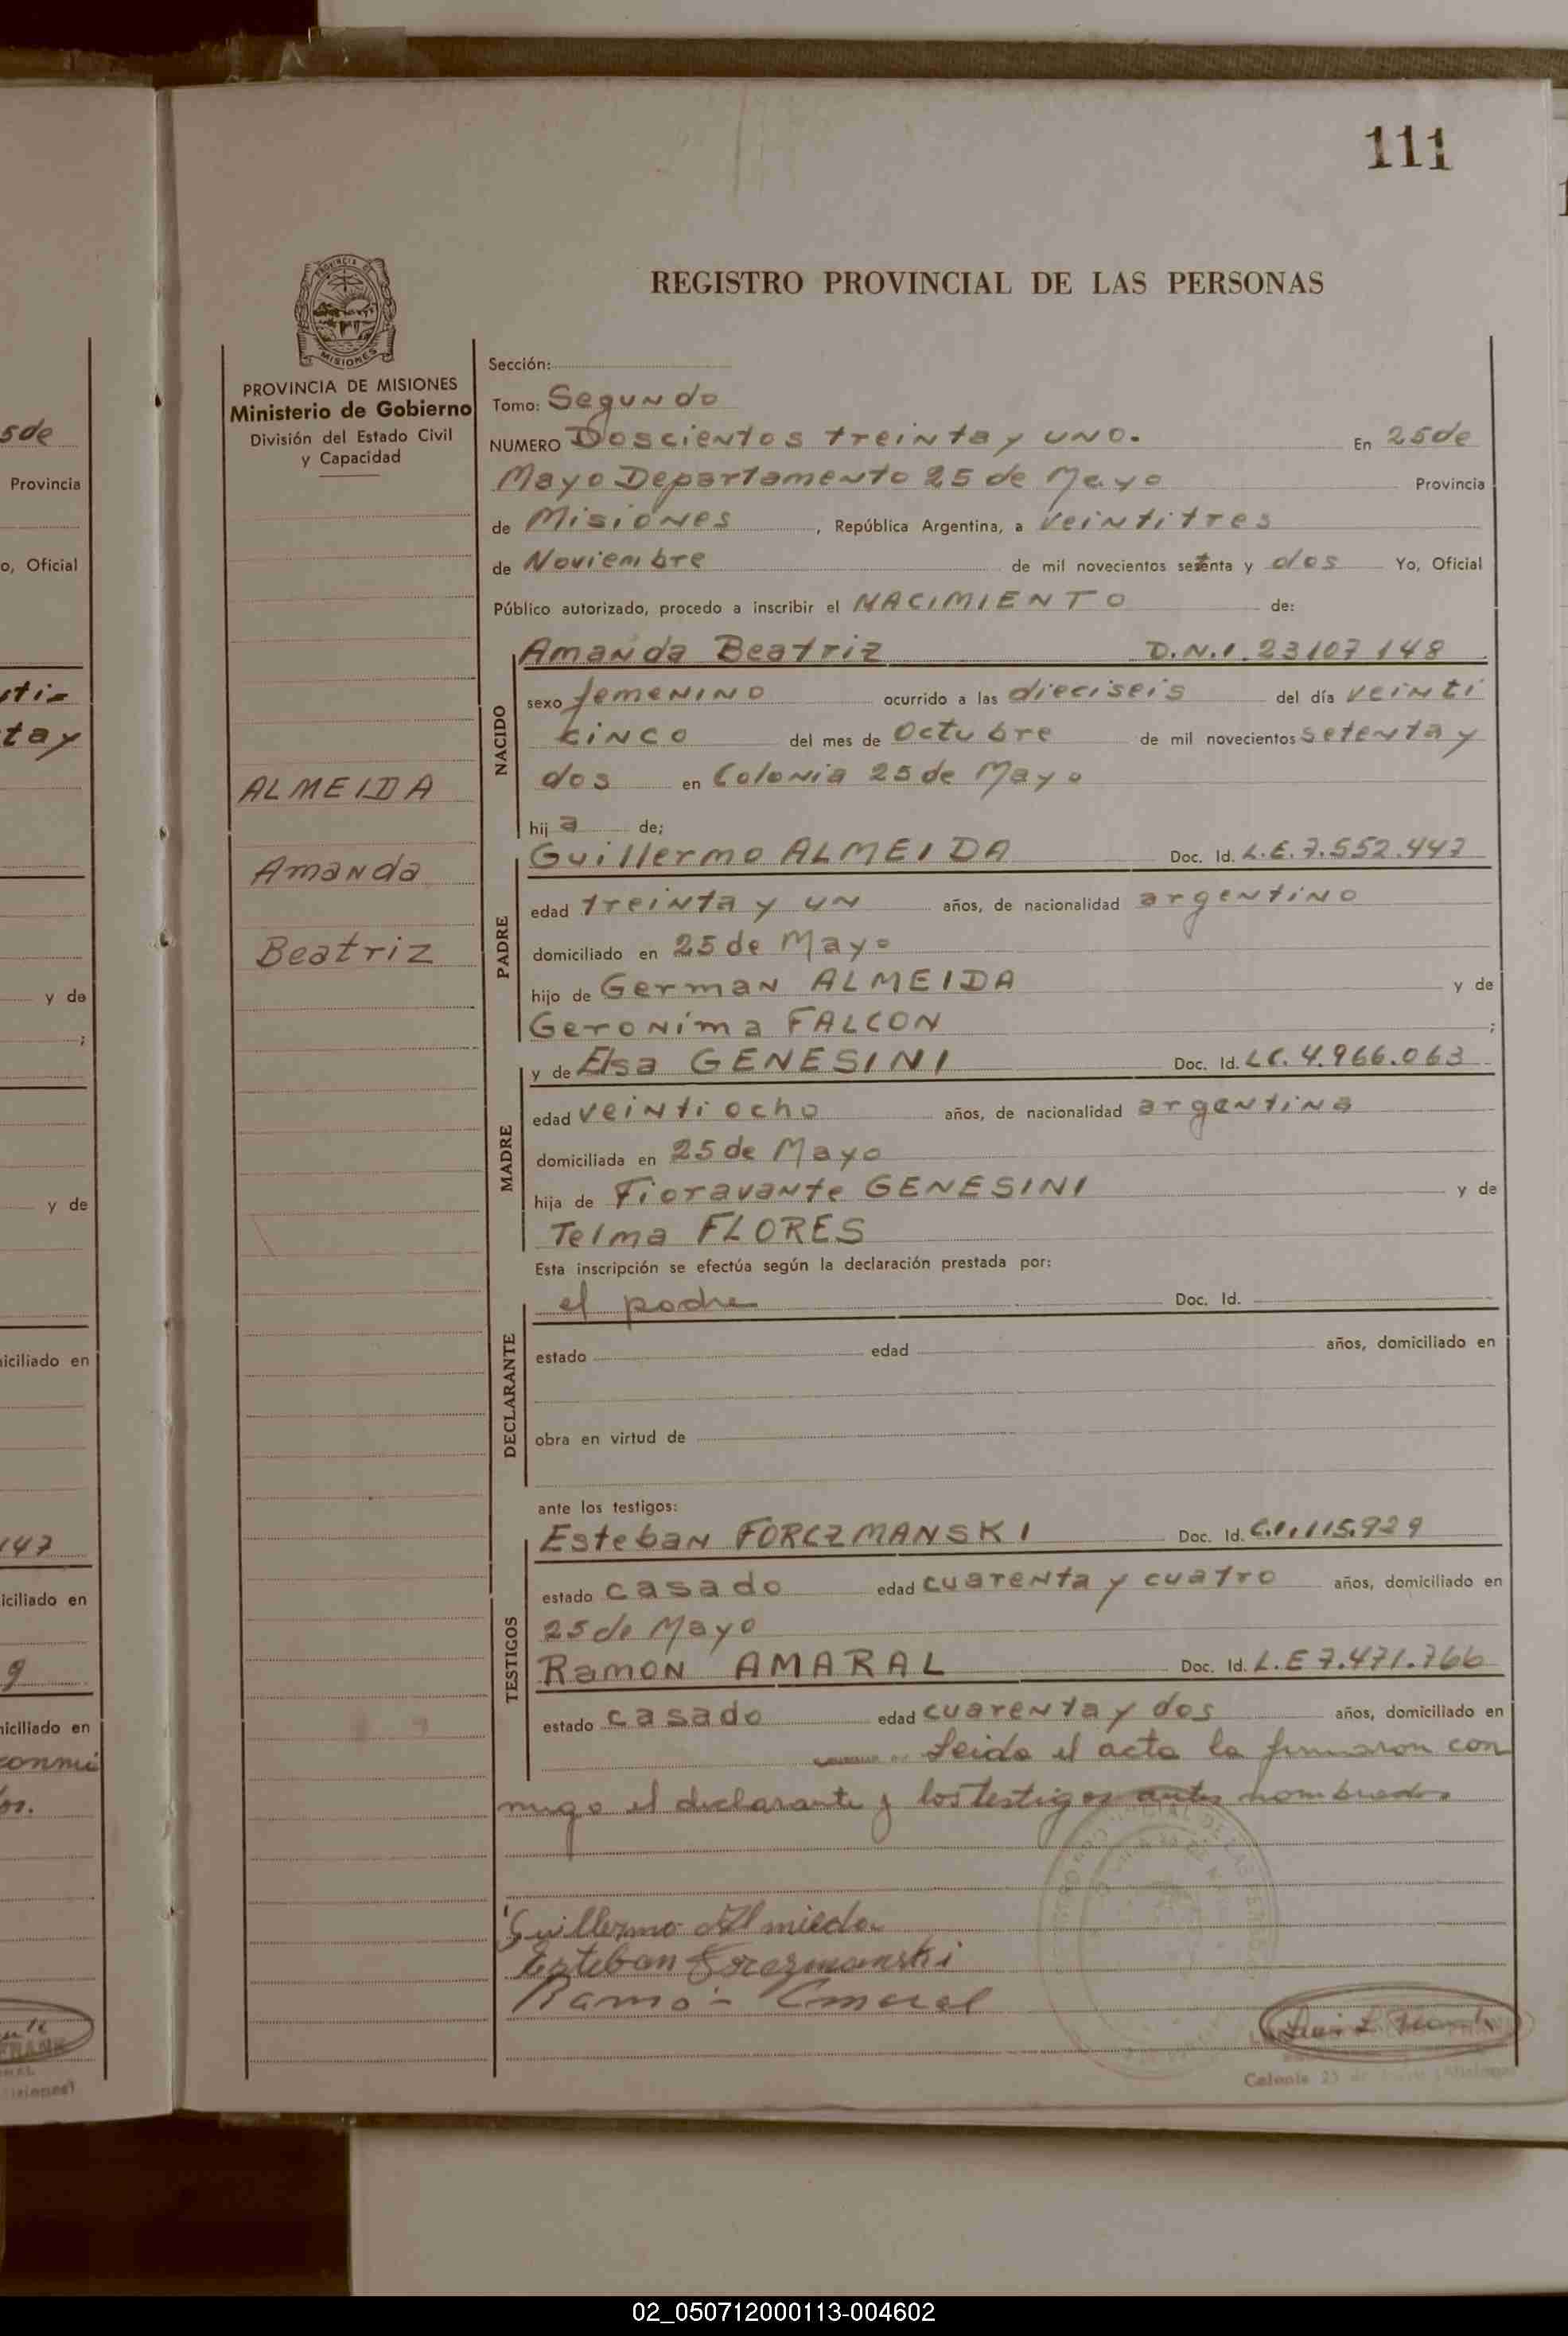 111
REGISTRO PROVINCIAL DE LAS PERSONAS
PROVINCIA DE
MISIONES
PROVINCIA DE MISIONES
Ministerio de Gobierno
División del Estado Civil
y Capacidad
ALMEIDA
Amanda
Beatriz
Sección:
Tomo: Segundo
NUMERO Doscientos treinta y uno. En 25 de
Mayo Departamento 25 de Mayo Provincia
de Misiones, República Argentina, a veintitres
de Noviembre de mil novecientos setenta y dos Yo, Oficial
Público autorizado, procedo a inscribir el NACIMIENTO de:
NACIDO
Amanda Beatriz D.N.I. 23107148
sexo femenino ocurrido a las dieciseis del día veinti
cinco del mes de Octubre de mil novecientos setenta y
dos en Colonia 25 de Mayo
hij a de;
PADRE
Guillermo ALMEIDA Doc. Id. L.E. 7.552.447
edad treinta y un años, de nacionalidad argentino
domiciliado en 25 de Mayo
hijo de German ALMEIDA y de
Geronima FALCON ;
MADRE
y de Elsa GENESINI Doc. Id. L.C. 4.966.063
edad veintiocho años, de nacionalidad argentina
domiciliada en 25 de Mayo
hija de Fioravante GENESINI y de
Telma FLORES
Esta inscripción se efectúa según la declaración prestada por:
DECLARANTE
el padre Doc. Id.
estado edad años, domiciliado en
obra en virtud de
ante los testigos:
TESTIGOS
Esteban FORCZMANSKI Doc. Id. C.I. 115.929
estado casado edad cuarenta y cuatro años, domiciliado en
25 de Mayo
Ramon AMARAL Doc. Id. L.E 7.471.766
estado casado edad cuarenta y dos años, domiciliado en
Leida el acta la firmaron con
migo el declarante y los testigos antes nombrados
Guillermo Almieda
Esteban Forczmanski
Ramon Amaral
Luis L. Frank
Colonia 25 de Mayo (Misiones)
5 de
Provincia
o, Oficial
tay
y de
;
y de
iciliado en
147
iciliado en
9
iciliado en
conmi
FRANK
02_050712000113-004602